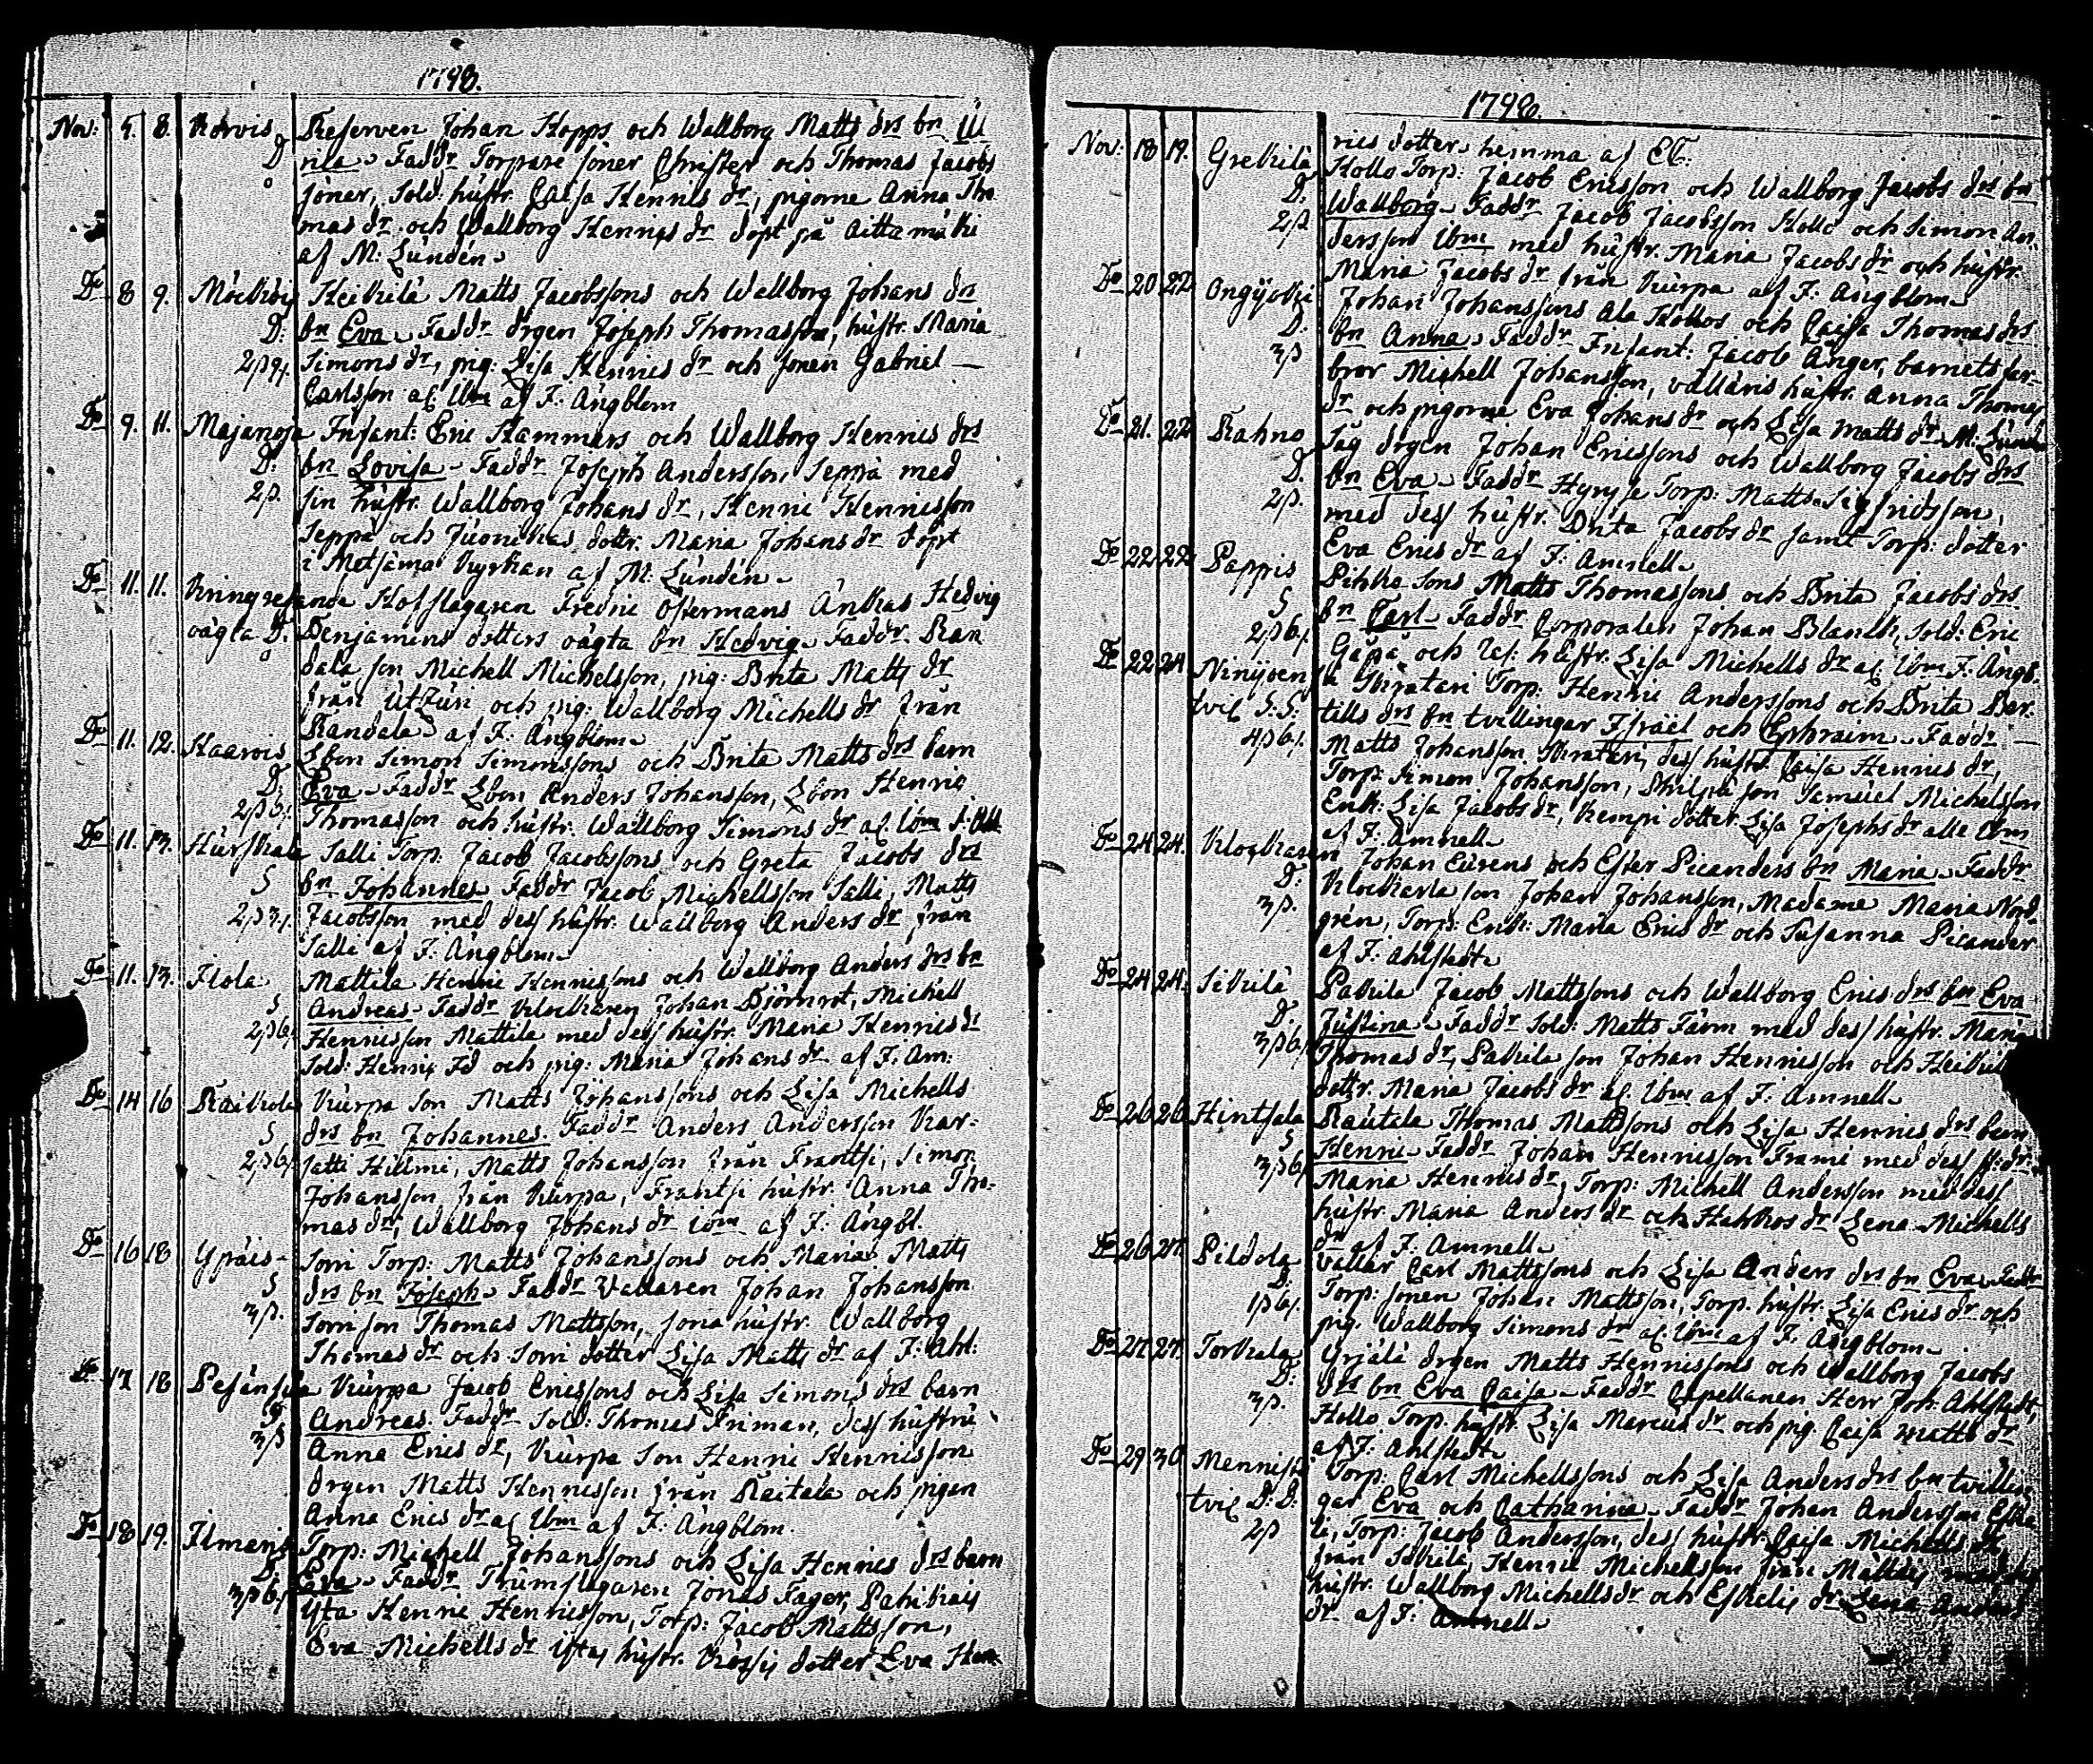 1798.
Nov: 5. 8. Korvis Reserven Johan Hopps och Wallborg Matts drs bn Ul
D rica. Faddr Torpare söner Christer och Thomas Jacobs
söner, Sold: hustr. Caisa Henrics dr, pigorne Anna Tho
mas dr och Wallborg Henrics dr döpt på Aittamäki
af M: Lundén.
Do 8 9. Heikilä Matts Jacobssons och Wallborg Johans drs
D: bn Eva. Faddr drgen Joseph Thomasson, hustr. Maria
Simons dr, pig: Lisa Henrics dr och sonen Gabriel
Carlsson af Ibm af J: Ängblom
Do 9. 11. Majanoja Infant: Eric Hammars och Wallborg Henrics drs
D: bn Lovisa. Faddr Joseph Andersson Seppä med
2p. sin hustr. Wallborg Johans dr, Henric Henricsson
Seppä och Juonikas dottr. Maria Johans dr döpt
i Metsämä Kyrkan af M: Lundén.
Do 11. 11. Kringresande Hofslagaren Fredric Östermans Änkas Hedvig
oägta D: Benjamins dotters oägta bn Hedvig. Faddr. Ran
dala son Michell Michelsson, pig: Brita Matts dr
från Utzuri och pig: Wallborg Michells dr från
Randala af J: Ängblom.
Do 11. 12. Haarois Lbon Simon Simonssons och Brita Matts drs barn
D: Eva. Faddr Lbon Anders Johansson, Lbon Henric
2p6. Thomasson och hustr. Wallborg Simons dr af Ibm
Do 11. 13. Hurskala Salli Torp: Jacob Jacobssons och Greta Jacobs drs
S bn Johannes. Faddr Jacob Michellsson Salli, Matts
Jacobsson med dess hustr. Wallborg Anders dr från
Salli af J: Ängblom.
Do 11. 13. Ilola Mattila Henric Henricssons och Wallborg Anders drs bn
S Andreas. Faddr Klockaren Johan Björnrot, Michell
2p6 Henricsson Mattila med dess hustr. Maria Henrics dr
Sold: Henric Id och pig: Maria Johans dr af J: Am:
Do 14 16 Raikola Kurpa Son Matts Johanssons och Lisa Michells
S drs bn Johannes. Faddr Anders Andersson Kar:
2p6 satti Hillmi, Matts Johansson från Frantsi, Simon
Johansson från Kurpa, Frantsi hustr. Anna Tho:
mas dr, Wallborg Johans dr Ibm af J: Ängbl.
Do 16 18 Ypäis- Somi Torp: Matts Johanssons och Maria Matts
S drs bn Joseph. Faddr Vallaren Johan Johansson
3p. Somi son Thomas Mattsson, sona hustr. Wallborg
Thomas dr och Somi dotter Lisa Matts dr af J: Ahl:
Do 17 18 Kurpa Jacob Ericssons och Lisa Simons drs barn
Andreas. Faddr Sold: Thomas Friman, dess hustru
3p Anna Erics dr, Kurpa Son Henric Henricsson
drgen Matts Henricsson från Raitala och pigan
Anna Erics dr af Ibm af J: Ängblom.
Do 18 19. Torp: Michell Johanssons och Lisa Henrics drs barn
D: Eva. Faddr Trumslagaren Jonas Fager,
3p6 Yta Henric Henricsson, Torp: Jacob Mattsson,
Eva Michells dr Ytas hustr. dotter Eva Hen
1798.
rics dotter hemma af CC:
Nov: 18 19. Grekilä Hollo Torp: Jacob Ericsson och Wallborg Jacobs drs bn
D: Wallborg. Faddr Jacob Jacobsson Hollo och Simon An:
2p dersson Ibm med hustr. Maria Jacobs dr och hustr.
Maria Jacobs dr från Kurpa af J: Ängblom.
Do 20 22 Ongijoki Johan Johanssons Ala Hollos och Caisa Thomas drs
D: bn Anna. Faddr Infant: Jacob Ånger, barnets far-
3p bror Michell Johansson, vallaris hustr. Anna Thomas
dr och pigorne Eva Johans dr och Lisa Matts dr M: Lundn
Do 21. 22 Rahno Säg drgen Johan Ericssons och Wallborg Jacobs drs
D. bn Eva. Faddr Hyryse Torp: Matts Sigfridsson,
2p. med dess hustr. Brita Jacobs dr samt Torp: dotter
Eva Erics dr af J: Amnell.
Do 22 22 Pappis Pihko Sons Matts Thomassons och Brita Jacobs drs
S bn Carl. Faddr Corporalen Johan Blanck, Sold: Eric
Gåpå och Res: hustr. Lisa Michells dr af Ibm J: Ängb.
Do 22 24 Ninijoen Torp: Henric Anderssons och Brita Ber:
tvil S: S: tills drs bn tvillingar Israel och Ephraim. Faddr
4p6 Matts Johansson dess hustr. Caisa Henrics dr,
Torp: Simon Johansson, Skilpä son Samuel Michelsson
Enk: Lisa Jacobs dr, Kempi dotter Lisa Josephs dr alle Ibm
af J: Amnell.
Do 24 24. Klockaren Johan Eurens och Ester Picanders bn Maria. Faddr
D: Klockarla son Johan Johansson, Madame Maria Nord-
3p. grén, Torp: Enk: Maria Erics dr och Susanna Picander
af J: Ahlstedt.
Do 24 24. Sikilä Pakila Jacob Mattssons och Wallborg Erics drs bn Eva
D. Justina. Faddr Sold: Matts Färm med dess hustr. Maria
3p6 Thomas dr, Pakila son Johan Henricsson och Heikil
dottr. Maria Jacobs dr af Ibm af J: Amnell.
Do 26 26 Hintsala Rautala Thomas Mattssons och Lisa Henrics drs barn
S Henric. Faddr Johan Henricsson Frami med dess
3p6 Maria Henrics dr, Torp: Michell Andersson med dess
hustr. Maria Anders dr och Hakkos dr Lena Michells
dr af J: Amnell.
Do 26 27. Pildola vallar Carl Mattssons och Lisa Anders drs bn Eva. Faddr
D: Torp: sonen Johan Mattsson, Torp. hustr. Lisa Erics dr och
1p6 pig. Wallborg Simons dr af Ibm af J: Ängblom.
Do 27 27. Torkala Yrjälä drgen Matts Henricssons och Wallborg Jacobs
D: drs bn Eva Caisa. Faddr Capellanen Herr Joh: Ahlstedt,
3p. Hollo Torp. hustr. Lisa Marcus dr och pig. Caisa Matts dr
af J: Ahlstedt.
Do 29 30 Mennis Torp: Carl Michellssons och Lisa Anders drs bn tvillin
tvil D: D: gar Eva och Catharina. Faddr Johan Andersson Eske
2p li, Torp: Jacob Andersson, dess hustr. Caisa Michells dr,
från Sikilä, Henric Michellsson från
hustr. Wallborg Michells dr och Eskelis dr Lena
dr af J: Amnell.